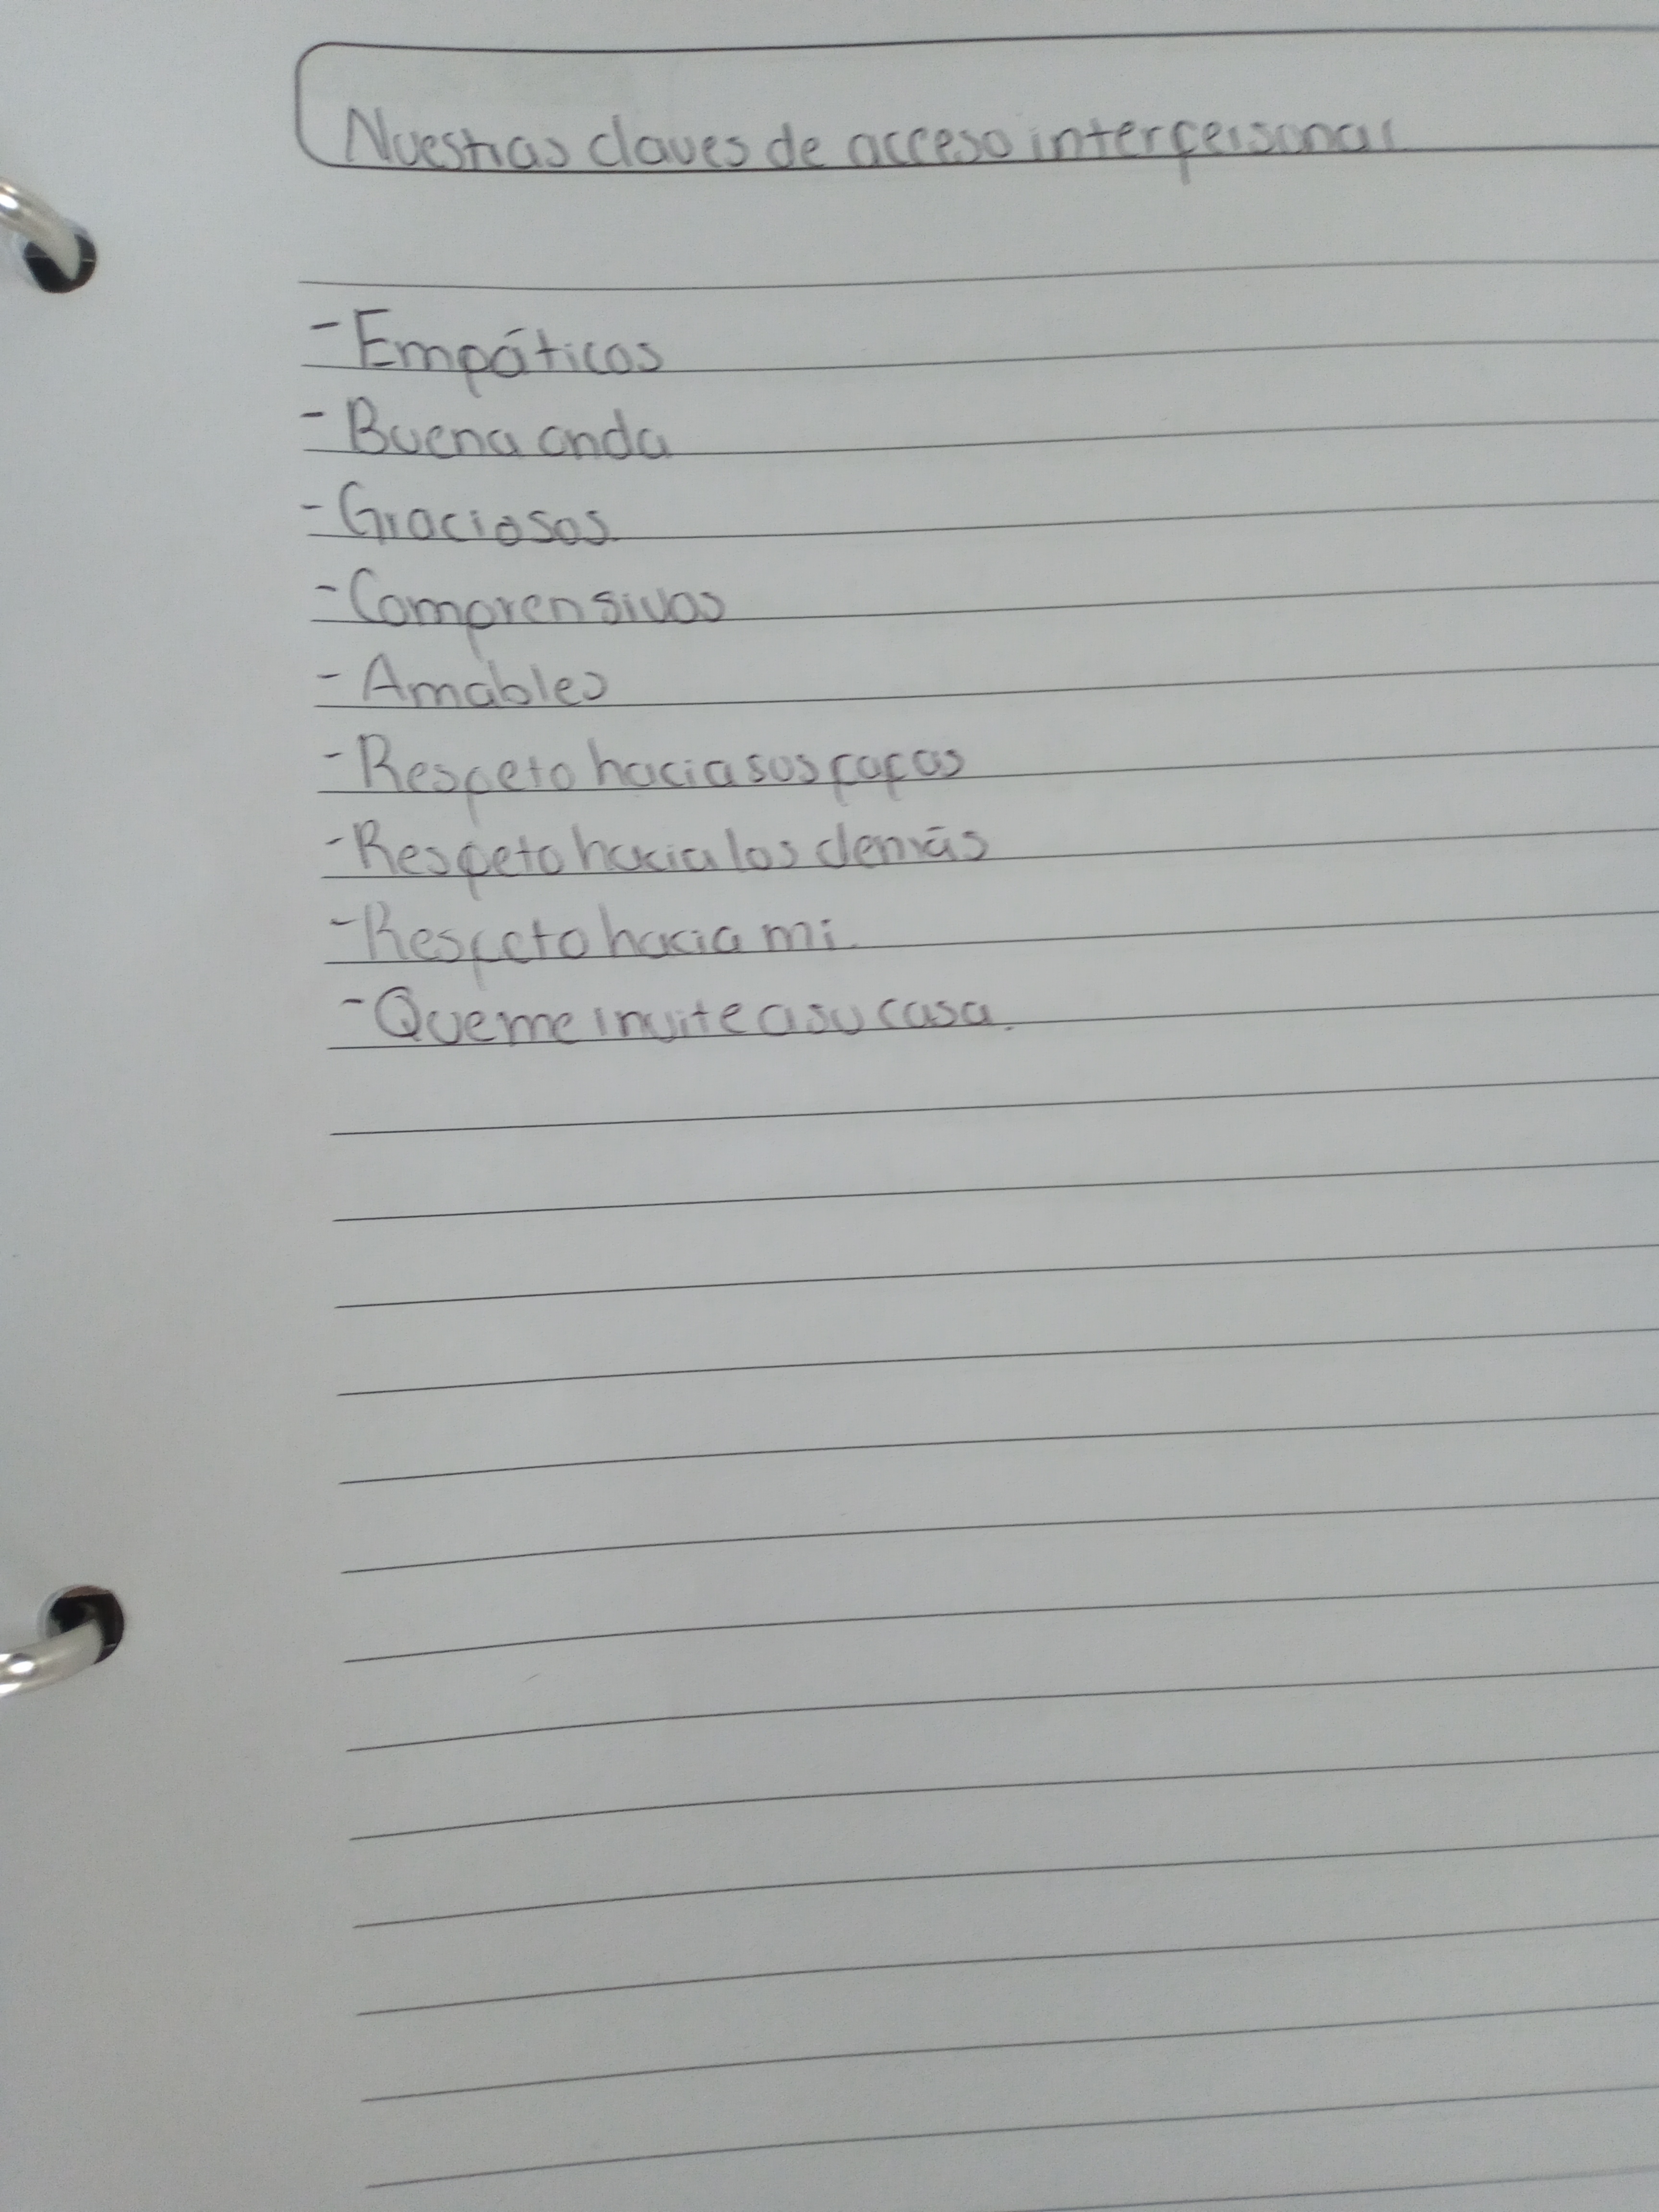 Nuestras claves de acceso interpersonal
- Empáticos
- Buena onda
- Graciosos.
- Comprensivos
- Amables
- Respeto hacia sus papas
- Respeto hacia los demás
- Respeto hacia mi.
- Que me invite a su casa.